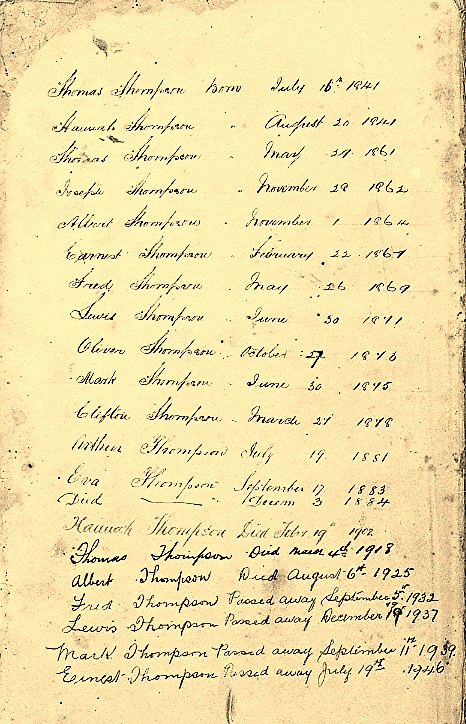 Thomas Thompson Born July 15th 1841
Hannah Thompson " August 20 1841
Thomas Thompson " May 29 1861
Joseph Thompson " November 28 1862
Albert Thompson " November 1 1864
Earnest Thompson " February 22 1867
Fred Thompson " May 26 1869
Lewis Thompson " June 30 1871
Oliver Thompson " October 29 1873
Mark Thompson " June 30 1875
Clifton Thompson " March 21 1878
Arthur Thompson July 19 1881
Eva Thompson September 17 1883
Died " Decem 3 1884
Hannah Thompson Died Febr 19th 1902
Thomas Thompson Died March 4th 1918
Albert Thompson Died August 6th 1925
Fred Thompson Passed away September 5th 1932
Lewis Thompson Passed away December 19th 1937
Mark Thompson Passed away September 11th 1939.
Ernest Thompson Passed away July 19th 1946